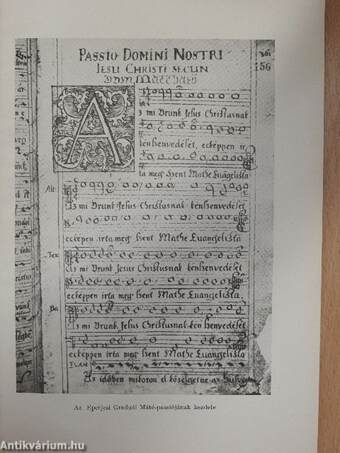 PASSIO DOMINI NOSTRI
IESU CHRISTI SECUN
DUM MATTHAEU
56
A
z mi Vrunk Jesus Christusnak
kenszenvedéset, eckeppen ir
ta meg szent Mathe Evangelista
Alt
Az mi Vrunk Jesus Christusnak kenszenvedeset
eckeppen irta meg szent Mathe Evangelista
Ten
Az mi Vrunk Jesus Christusnak kenszenvedeset
eckeppen irta meg szent Mathe Evangelista.
Ba
Az mi Vrunk Jesus Christusnak kenszenvedeset
eckeppen irta meg szent Mathe Evangelista
EVAN
Az időben mikoron el közelgetne az
Az Eperjesi Graduál Máté-passiójának kezdete
Antikvárium.hu